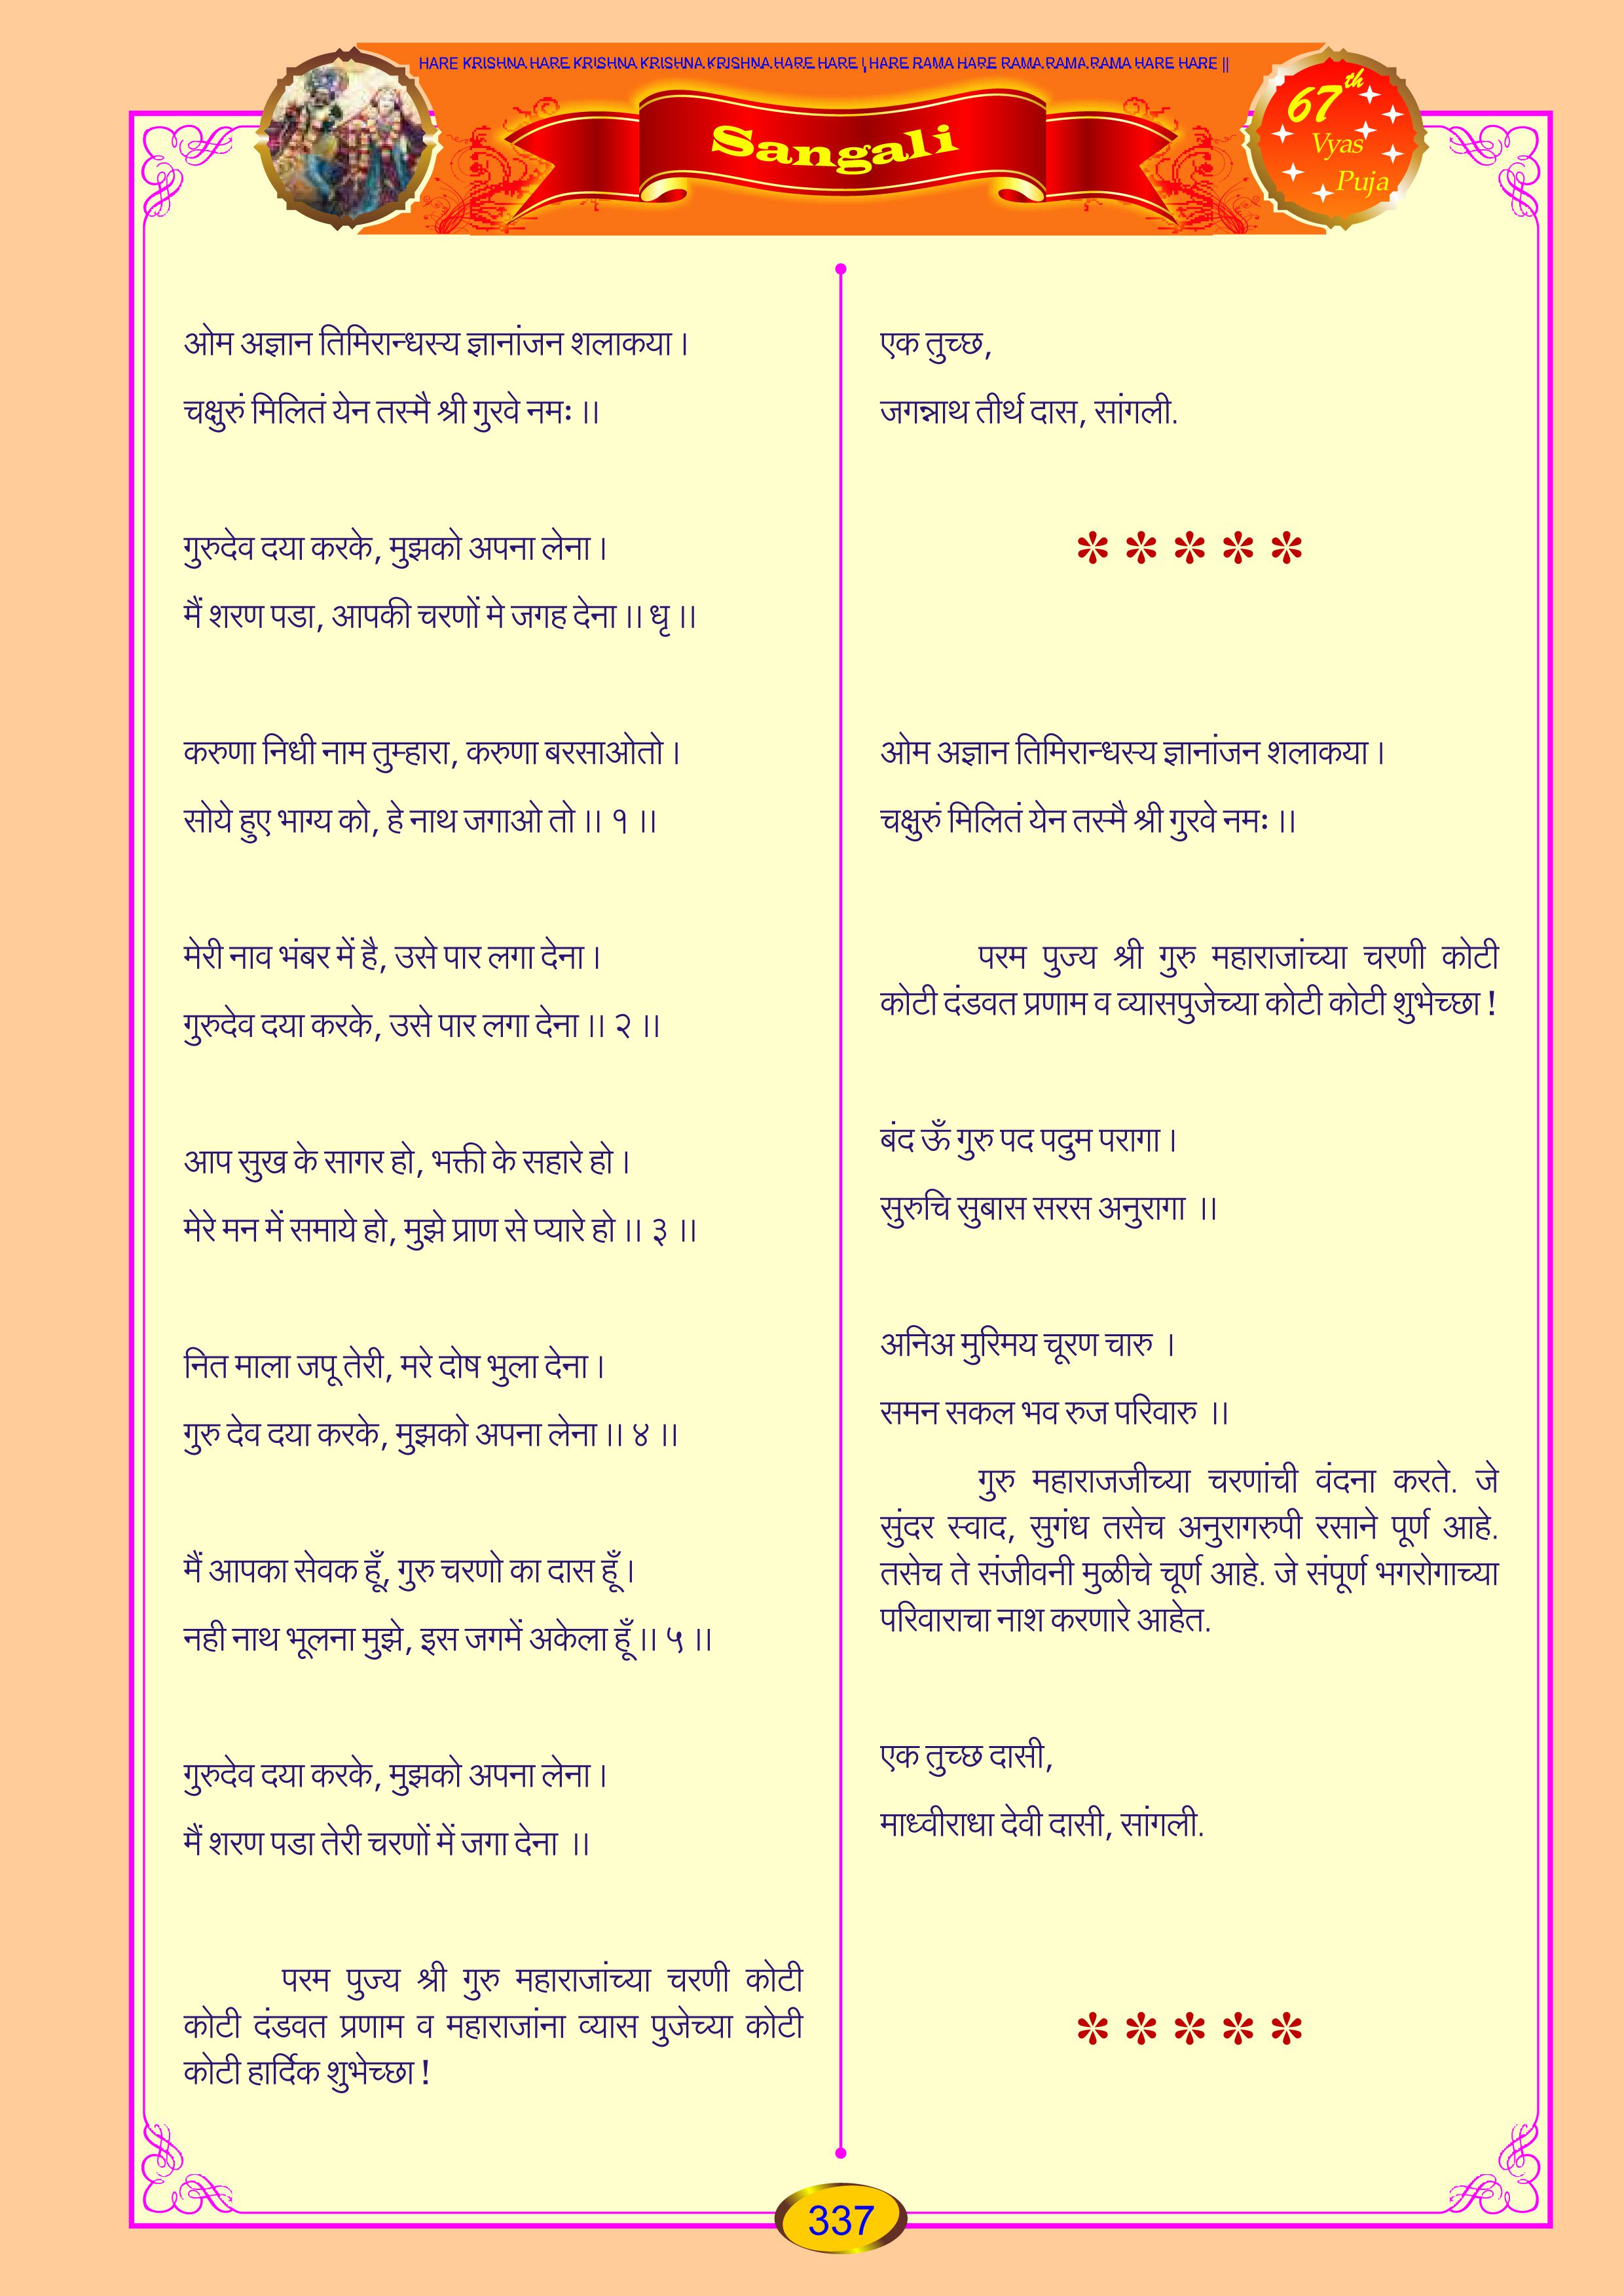 HARE KRISHNA HARE KRISHNA KRISHNA KRISHNA HARE HARE | HARE RAMA HARE RAMA RAMA RAMA HARE HARE ||
Sangali
67th
Vyas
Puja
ओम अज्ञान तिमिरान्धस्य ज्ञानांजन शलाकया ।
चक्षुरुं मिलितं येन तस्मै श्री गुरवे नमः ।।
गुरुदेव दया करके, मुझको अपना लेना ।
मैं शरण पडा, आपकी चरणों मे जगह देना ।। धृ ।।
करुणा निधी नाम तुम्हारा, करुणा बरसाओतो ।
सोये हुए भाग्य को, हे नाथ जगाओ तो ।। १ ।।
मेरी नाव भंबर में है, उसे पार लगा देना ।
गुरुदेव दया करके, उसे पार लगा देना ।। २ ।।
आप सुख के सागर हो, भक्ती के सहारे हो ।
मेरे मन में समाये हो, मुझे प्राण से प्यारे हो ।। ३ ।।
नित माला जपू तेरी, मरे दोष भुला देना ।
गुरु देव दया करके, मुझको अपना लेना ।। ४ ।।
मैं आपका सेवक हूँ, गुरु चरणो का दास हूँ ।
नही नाथ भूलना मुझे, इस जगमें अकेला हूँ ।। ५ ।।
गुरुदेव दया करके, मुझको अपना लेना ।
मैं शरण पडा तेरी चरणों में जगा देना ।।
परम पुज्य श्री गुरु महाराजांच्या चरणी कोटी
कोटी दंडवत प्रणाम व महाराजांना व्यास पुजेच्या कोटी
कोटी हार्दिक शुभेच्छा !
एक तुच्छ,
जगन्नाथ तीर्थ दास, सांगली.
✽ ✽ ✽ ✽ ✽
ओम अज्ञान तिमिरान्धस्य ज्ञानांजन शलाकया ।
चक्षुरुं मिलितं येन तस्मै श्री गुरवे नमः ।।
परम पुज्य श्री गुरु महाराजांच्या चरणी कोटी
कोटी दंडवत प्रणाम व व्यासपुजेच्या कोटी कोटी शुभेच्छा !
बंद ऊँ गुरु पद पदुम परागा ।
सुरुचि सुबास सरस अनुरागा ।।
अनिअ मुरिमय चूरण चारु ।
समन सकल भव रुज परिवारु ।।
गुरु महाराजजीच्या चरणांची वंदना करते. जे
सुंदर स्वाद, सुगंध तसेच अनुरागरुपी रसाने पूर्ण आहे.
तसेच ते संजीवनी मुळीचे चूर्ण आहे. जे संपूर्ण भगरोगाच्या
परिवाराचा नाश करणारे आहेत.
एक तुच्छ दासी,
माध्वीराधा देवी दासी, सांगली.
✽ ✽ ✽ ✽ ✽
337